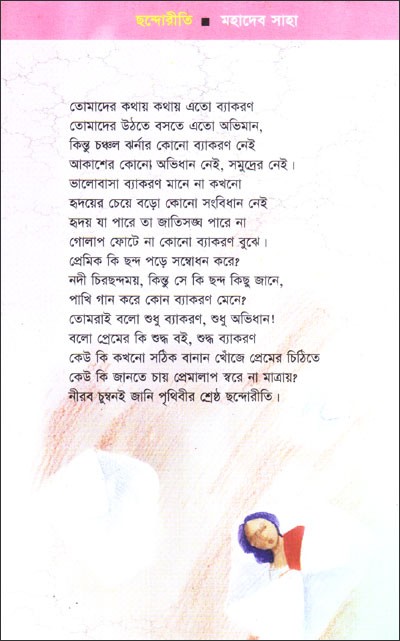 ছন্দোরীতি ■ মহাদেব সাহা
তোমাদের কথায় কথায় এতো ব্যাকরণ
তোমাদের উঠতে বসতে এতো অভিমান,
কিন্তু চঞ্চল ঝর্নার কোনো ব্যাকরণ নেই
আকাশের কোনো অভিধান নেই, সমুদ্রের নেই।
ভালোবাসা ব্যাকরণ মানে না কখনো
হৃদয়ের চেয়ে বড়ো কোনো সংবিধান নেই
হৃদয় যা পারে তা জাতিসঙ্ঘ পারে না
গোলাপ ফোটে না কোনো ব্যাকরণ বুঝে।
প্রেমিক কি ছন্দ পড়ে সম্বোধন করে?
নদী চিরছন্দময়, কিন্তু সে কি ছন্দ কিছু জানে,
পাখি গান করে কোন ব্যাকরণ মেনে?
তোমরাই বলো শুধু ব্যাকরণ, শুধু অভিধান!
বলো প্রেমের কি শুদ্ধ বই, শুদ্ধ ব্যাকরণ
কেউ কি কখনো সঠিক বানান খোঁজে প্রেমের চিঠিতে
কেউ কি জানতে চায় প্রেমালাপ স্বরে না মাত্রায়?
নীরব চুম্বনই জানি পৃথিবীর শ্রেষ্ঠ ছন্দোরীতি।